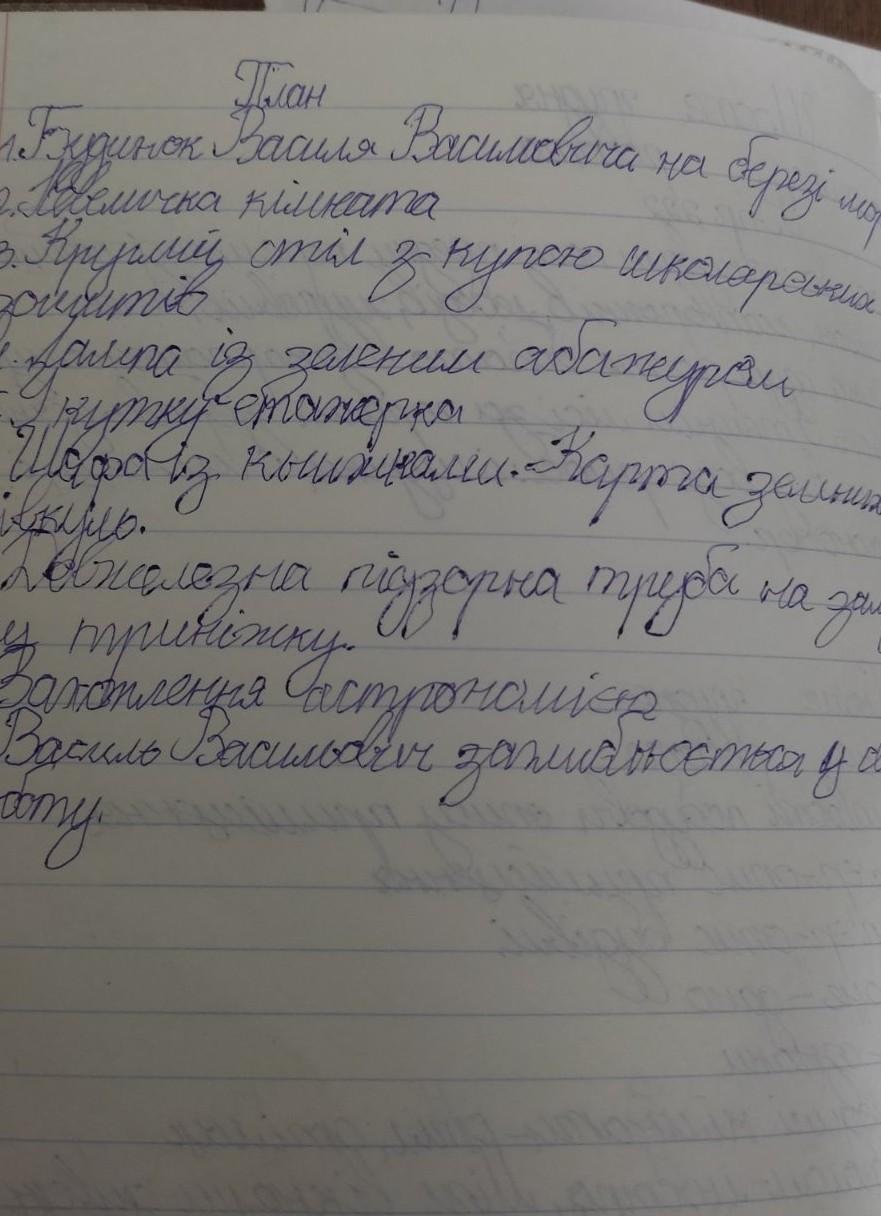 План
1. Будинок Василя Васильовича на березі мор
2. Невеличка кімната
3. Круглий стіл з купою школярських
зошитів
Лампа із зеленим абажуром
У кутку етажерка
Шафа із книжками. Карта земних
івкуль.
Довжелезна підзорна труба на зал
у триніжку.
Захоплення астрономією
Василь Васильович заглиблюється у
боту.